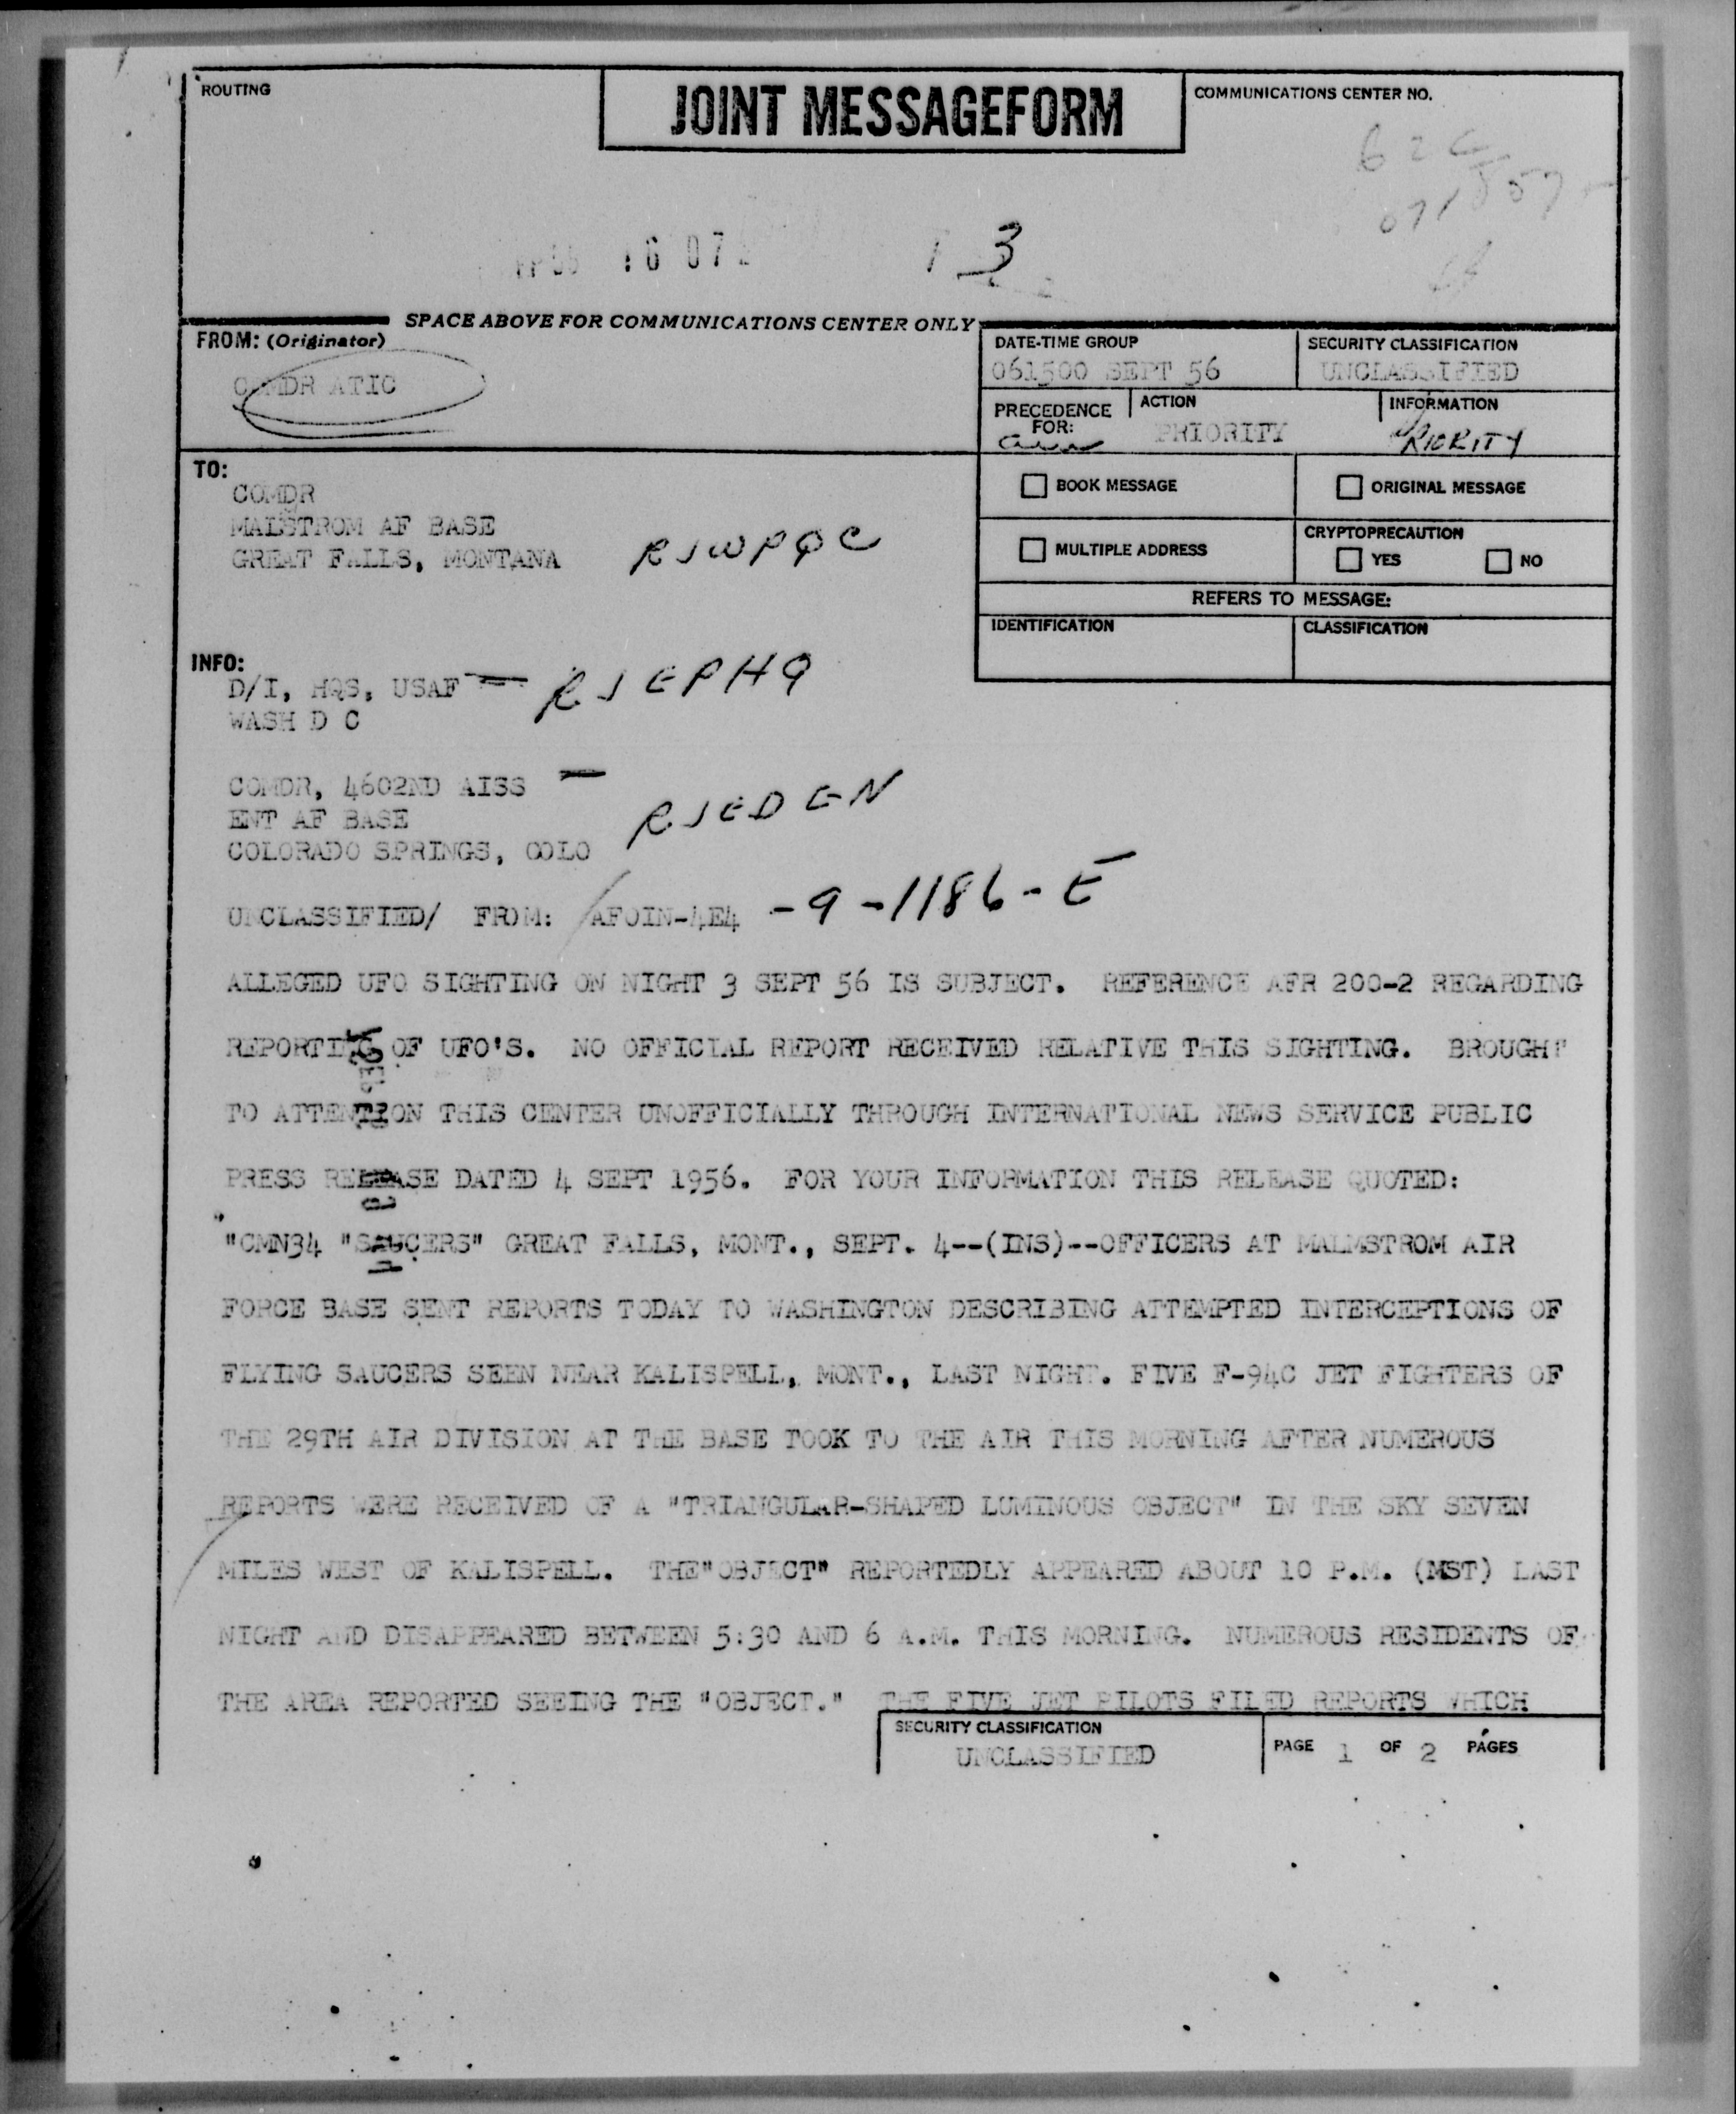 ROUTING
JOINT MESSAGEFORM
COMMUNICATIONS CENTER NO.
3
SPACE ABOVE FOR COMMUNICATIONS CENTER ONLY
FROM: (Originator)
COMDR ATIC
DATE-TIME GROUP
061500 SEPT 56
SECURITY CLASSIFICATION
UNCLASSIFIED
PRECEDENCE
FOR:
ACTION
PRIORITY
INFORMATION
PRIORITY
TO:
COMDR
MALSTROM AF BASE
GREAT FALLS, MONTANA RJWPQC
BOOK MESSAGE
ORIGINAL MESSAGE
MULTIPLE ADDRESS
CRYPTOPRECAUTION
YES NO
REFERS TO MESSAGE:
IDENTIFICATION
CLASSIFICATION
INFO:
D/I, HQS, USAF — RJEPHQ
WASH D C
COMDR, 4602ND AISS —
ENT AF BASE RJEDEN
COLORADO SPRINGS, COLO
UNCLASSIFIED/ FROM: AFOIN-4E4 -9-1186-E
ALLEGED UFO SIGHTING ON NIGHT 3 SEPT 56 IS SUBJECT. REFERENCE AFR 200-2 REGARDING
REPORTING OF UFO'S. NO OFFICIAL REPORT RECEIVED RELATIVE THIS SIGHTING. BROUGHT
TO ATTENTION THIS CENTER UNOFFICIALLY THROUGH INTERNATIONAL NEWS SERVICE PUBLIC
PRESS RELEASE DATED 4 SEPT 1956. FOR YOUR INFORMATION THIS RELEASE QUOTED:
"CMN34 "SAUCERS" GREAT FALLS, MONT., SEPT. 4--(INS)--OFFICERS AT MALMSTROM AIR
FORCE BASE SENT REPORTS TODAY TO WASHINGTON DESCRIBING ATTEMPTED INTERCEPTIONS OF
FLYING SAUCERS SEEN NEAR KALISPELL, MONT., LAST NIGHT. FIVE F-94C JET FIGHTERS OF
THE 29TH AIR DIVISION AT THE BASE TOOK TO THE AIR THIS MORNING AFTER NUMEROUS
REPORTS WERE RECEIVED OF A "TRIANGULAR-SHAPED LUMINOUS OBJECT" IN THE SKY SEVEN
MILES WEST OF KALISPELL. THE"OBJECT" REPORTEDLY APPEARED ABOUT 10 P.M. (MST) LAST
NIGHT AND DISAPPEARED BETWEEN 5:30 AND 6 A.M. THIS MORNING. NUMEROUS RESIDENTS OF
THE AREA REPORTED SEEING THE "OBJECT." THE FIVE JET PILOTS FILED REPORTS WHICH
SECURITY CLASSIFICATION
UNCLASSIFIED
PAGE 1 OF 2 PAGES